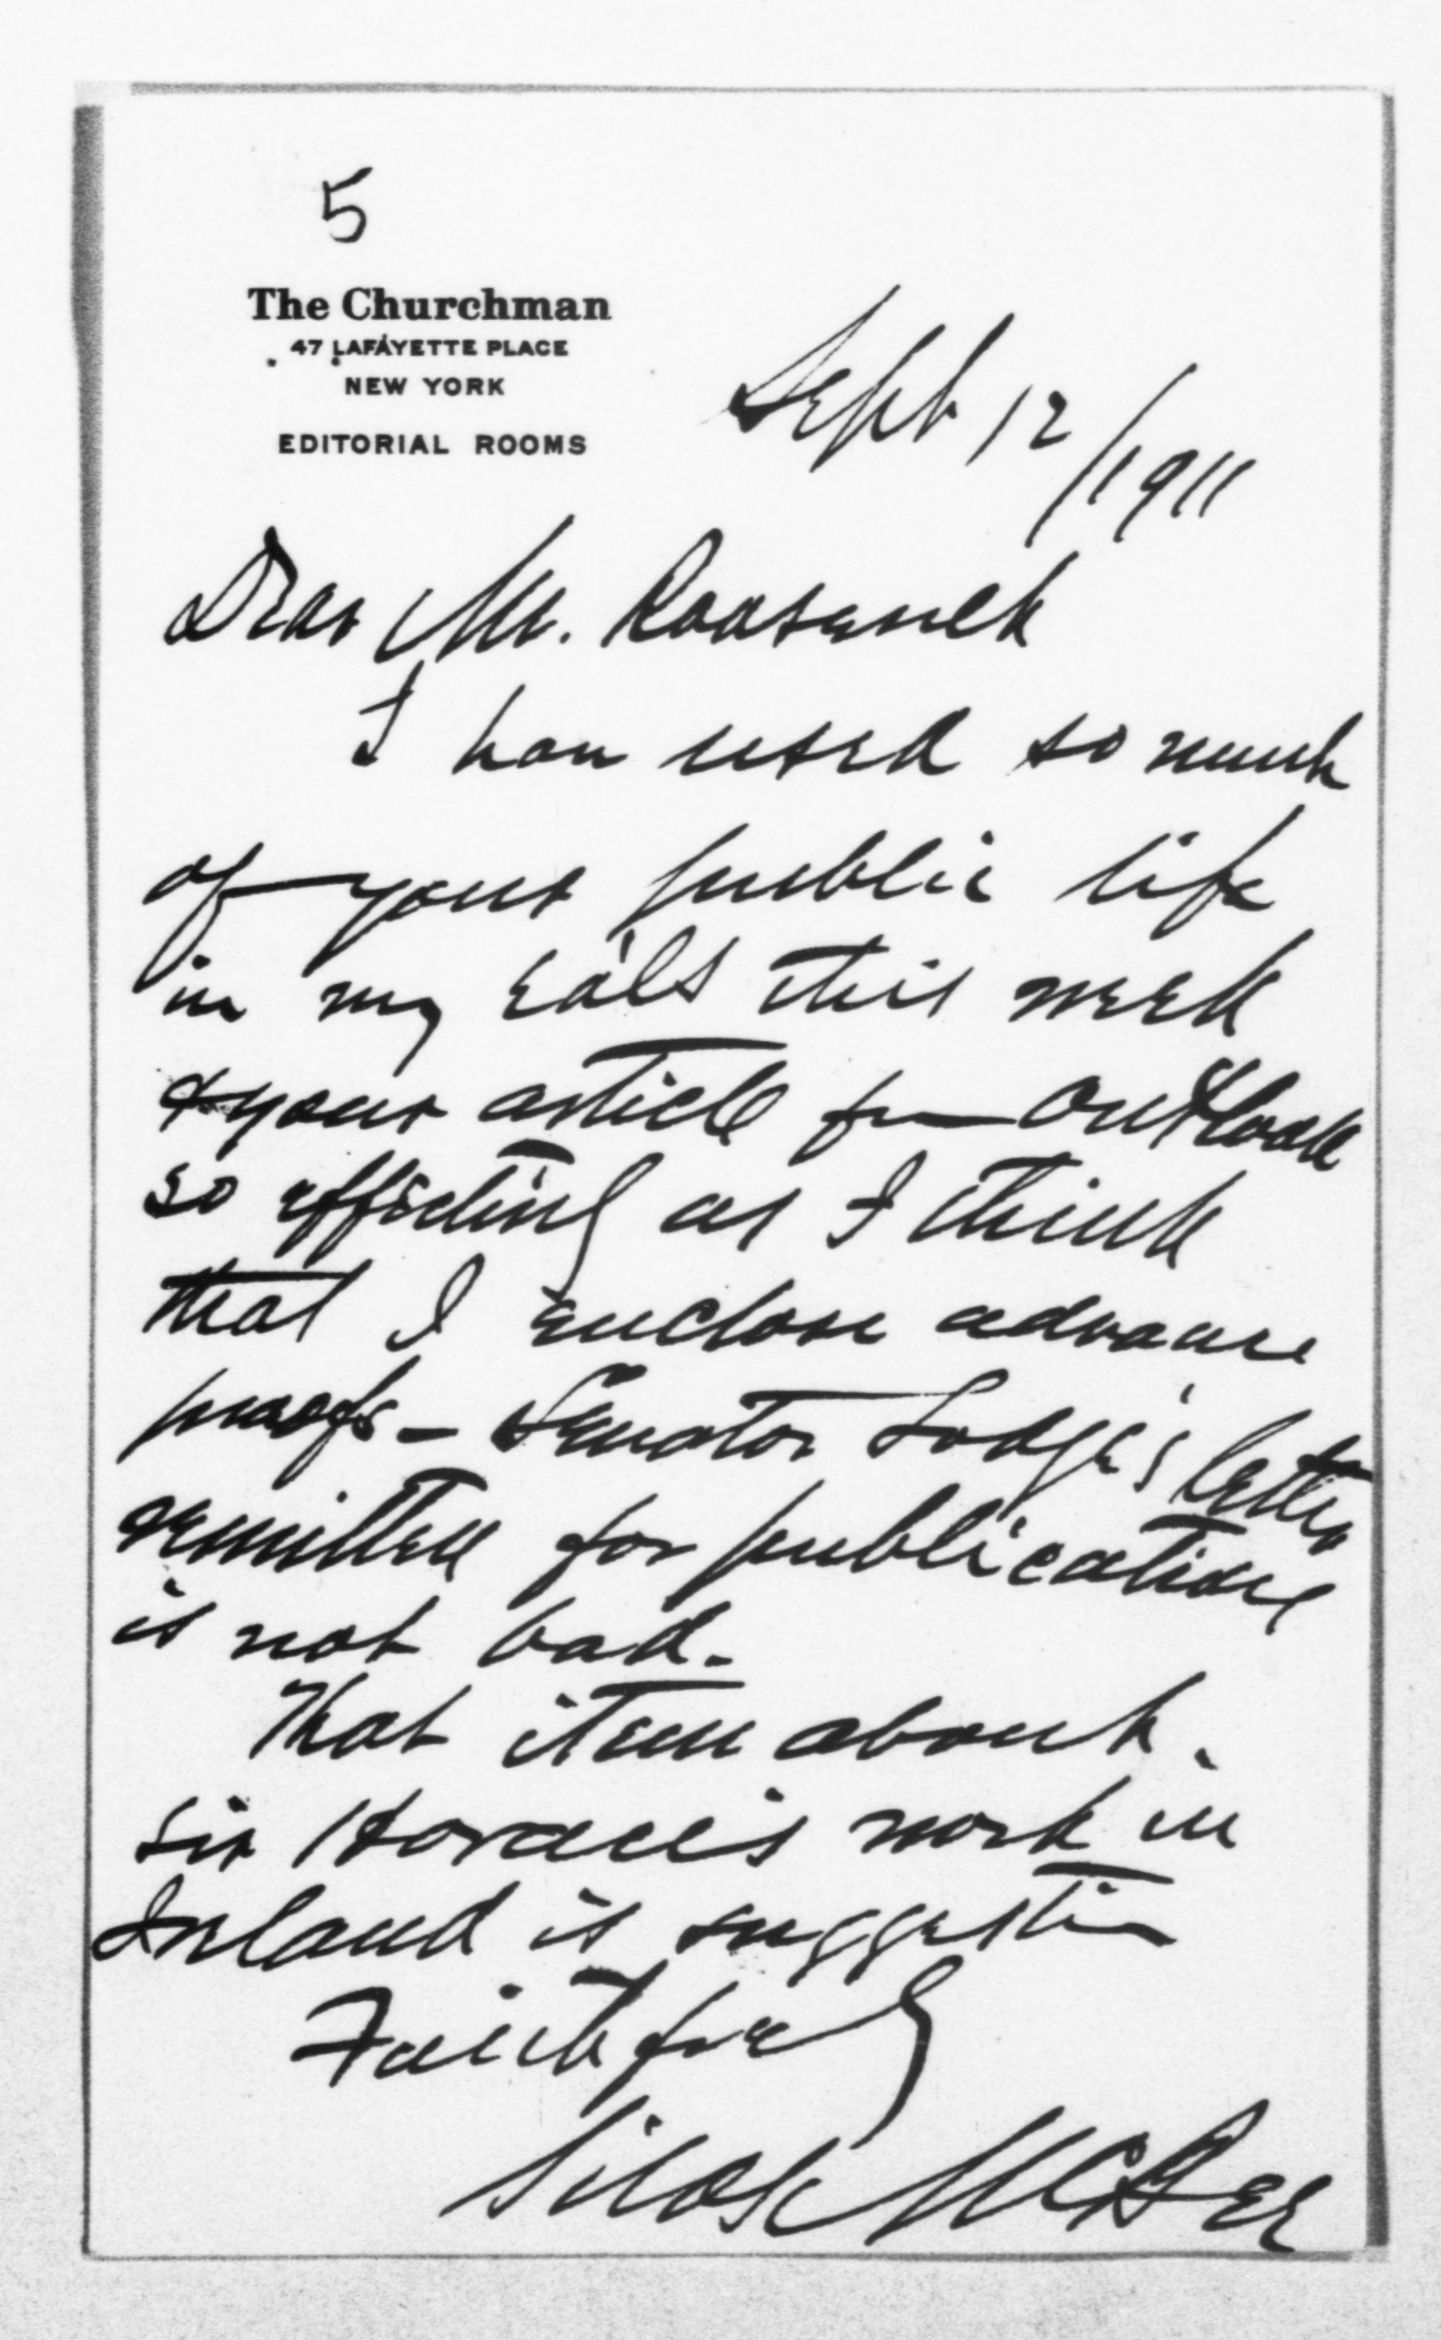 5
The Churchman
47 LAFAYETTE PLACE
NEW YORK
EDITORIAL ROOMS
Sept 12/1911
Dear Mr. Roosevelt
I have used so much
of your public life
in my this week
& your article from Outlook
so effectively as I think
that I enclose advance
proofs – Senator Lodge's letter
for publication
is not bad.
That item about
Sir Horace's work in
Ireland is suggestive
Faithfully
Silas McBee